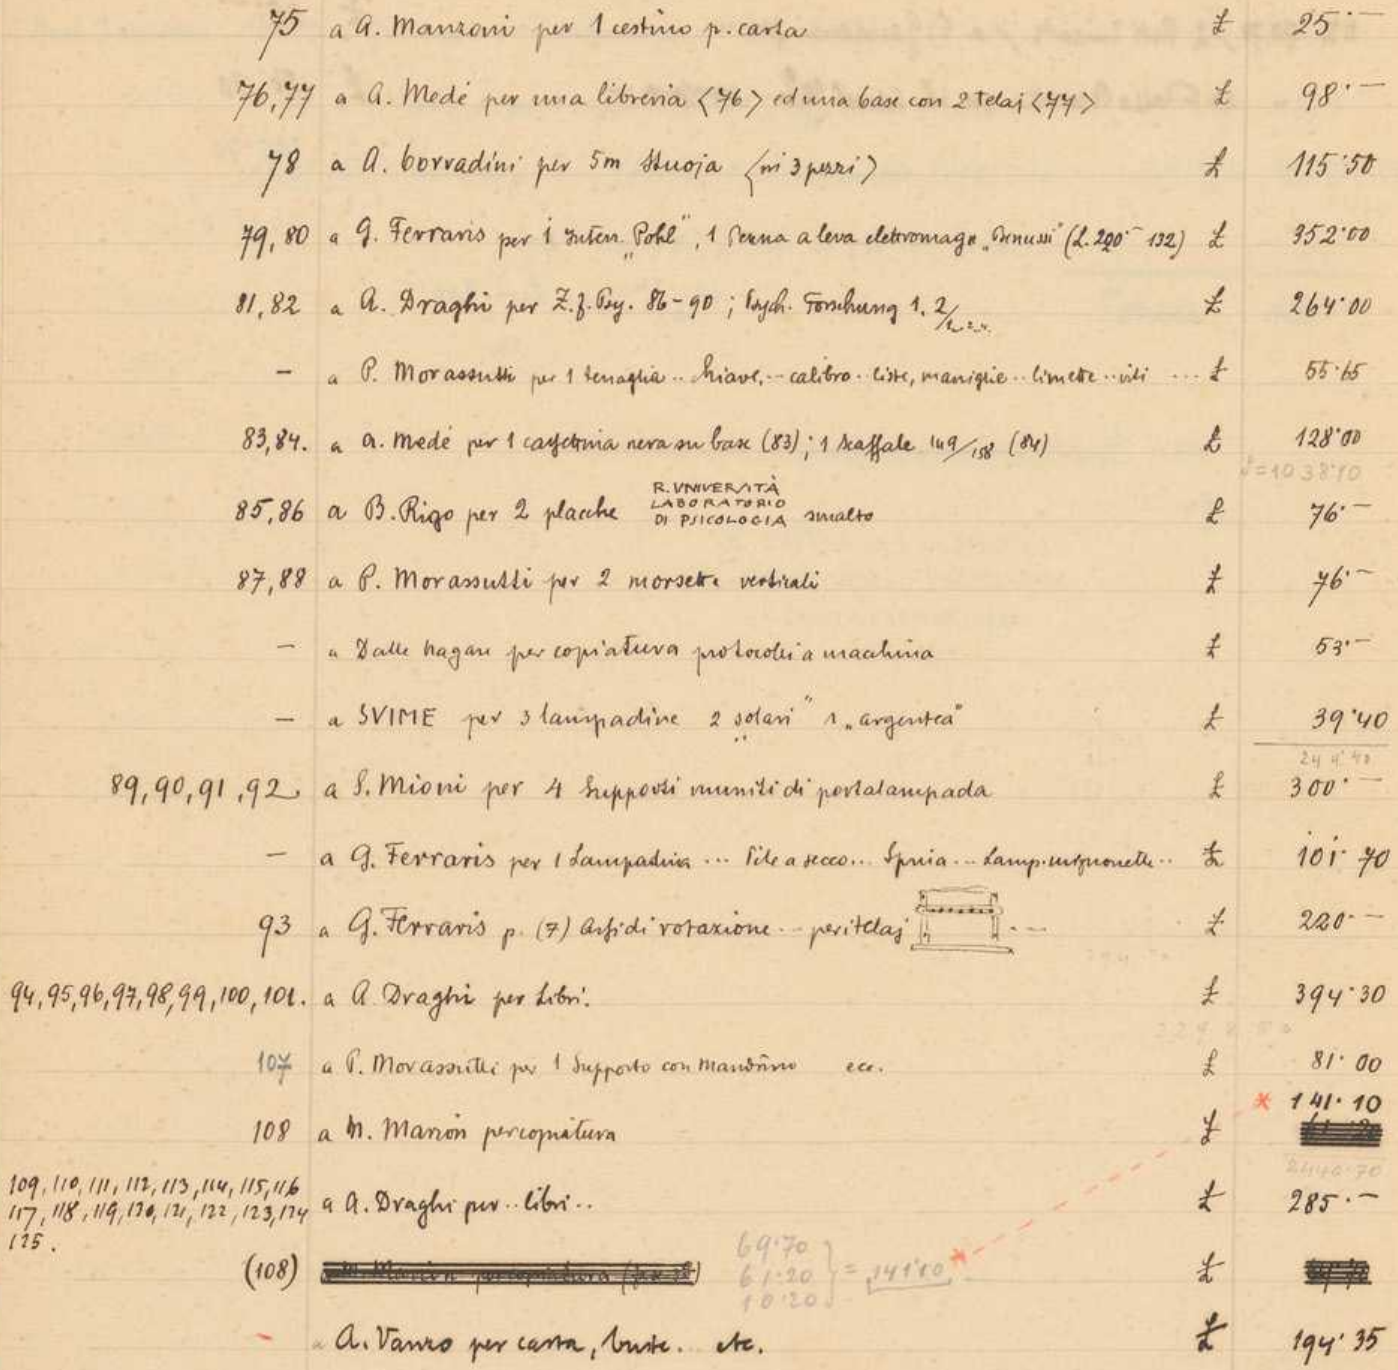 75 a A. Manzoni per 1 cestino p. carta £ 25·—
76,77 a A. Medé per una libreria <76> ed una base con 2 telaj <77> £ 98·—
78 a A. Corradini per 5m stuoja <in 3 pezzi> £ 115·50
79,80 a G. Ferraris per 1 Interr. "Pohl", 1 Penna a leva elettromagn. „Benussi" (L. 220·— 132) £ 352·00
81,82 a A. Draghi per Z.f. Psy. 86-90; Psych. Forschung 1. 2/ £ 264·00
— a P. Morassutti per 1 tenaglia .. chiave, .. calibro .. liste, maniglie .. limette .. viti ... £ 55·65
83,84. a A. Medé per 1 cassettina nera su base (83); 1 scaffale 149/158 (84) £ 128·00
£=1038·10
85,86 a B. Rigo per 2 placche R. UNIVERSITÀ LABORATORIO DI PSICOLOGIA smalto £ 76·—
87,88 a P. Morassutti per 2 morsette verticali £ 76·—
— a Dalle per copiatura protocolli a macchina £ 53·—
— a SVIME per 3 lampadine 2 „solari" 1 „argentea" £ 39·40
244·40
89,90,91,92 a S. Mioni per 4 Supporti muniti di portalampada £ 300·—
— a G. Ferraris per 1 Lampadina ... Pile a secco... Spina ... Lamp. mignonette .. £ 101·70
93 a G. Ferraris p. (7) Assi di rotazione .. per i telaj £ 220·—
94,95,96,97,98,99,100,101. a A. Draghi per Libri. £ 394·30
107 a P. Morassutti per 1 Supporto con mandrino ecc. £ 81·00
* 141·10
108 a M. Marion per copiatura £
2440·70
109, 110, 111, 112, 113, 114, 115, 116
117, 118, 119, 120, 121, 122, 123, 124 a A. Draghi per .. libri .. £ 285·—
125.
69·70
(108) 61·20 = 141·10 * £
10·20
— a A. Vanzo per carta, buste. etc. £ 194·35